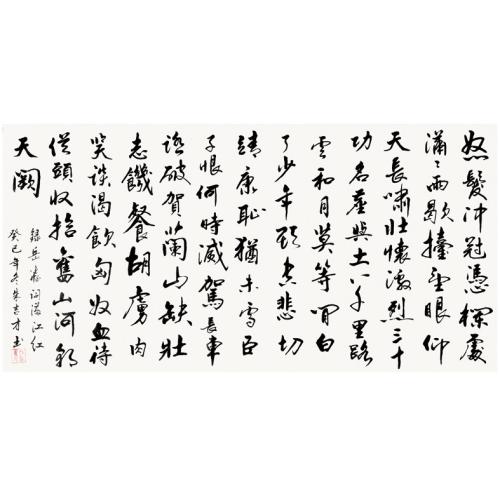 怒髮冲冠憑欄處
瀟〻雨歇擡望眼仰
天長嘯壯懷激烈三十
功名塵與土八千里路
雲和月莫等閒白
了少年頭空悲切
靖康恥猶未雪臣
子恨何時滅駕長車
踏破賀蘭山缺壯
志饑餐胡虜肉
笑談渴飲匈奴血待
從頭收拾舊山河朝
天闕
錄岳飛词滿江红
癸巳年冬朱吉才书